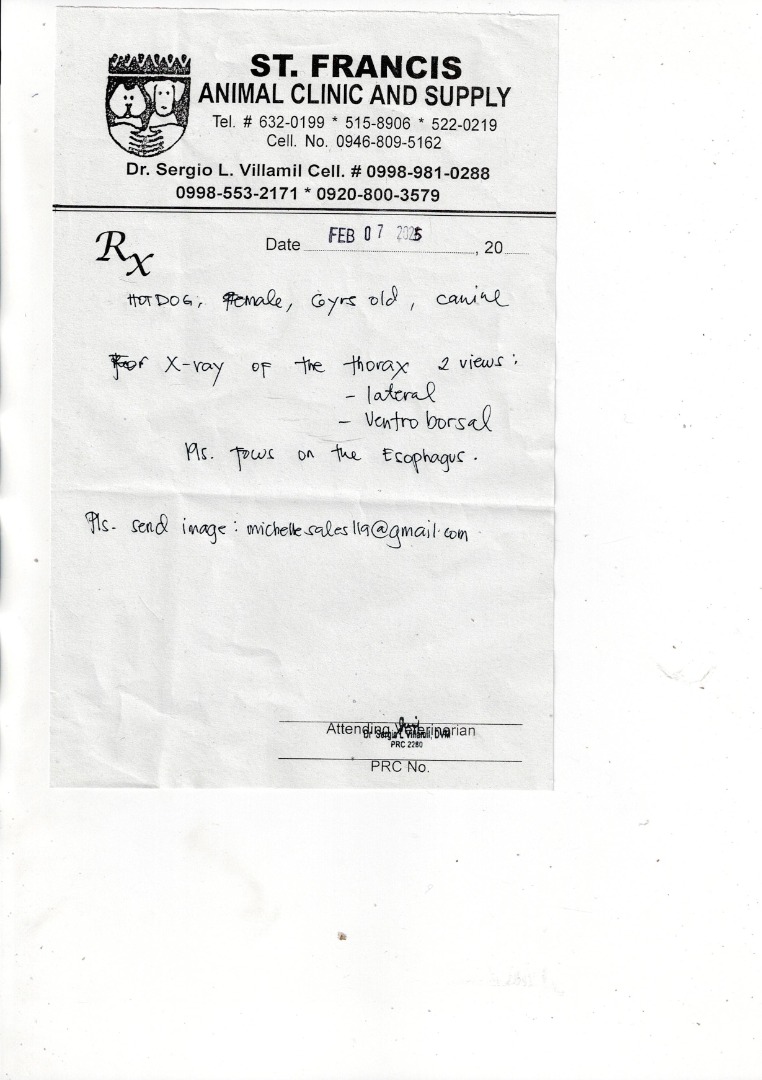 ST. FRANCIS
ANIMAL CLINIC AND SUPPLY
Tel. # 632-0199 * 515-8906 * 522-0219
Cell. No. 0946-809-5162
Dr. Sergio L. Villamil Cell. # 0998-981-0288
0998-553-2171 * 0920-800-3579
Rx
Date FEB 07 2025, 20
HOTDOG, Female, 6yrs old, canine
For X-ray of the thorax 2 views:
- lateral
- Ventro borsal
Pls. focus on the Esophagus.
Pls. send image: michellesales119@gmail.com
Attending Veterinarian
Dr Sergio L. Villamil, DVM
PRC 2280
PRC No.